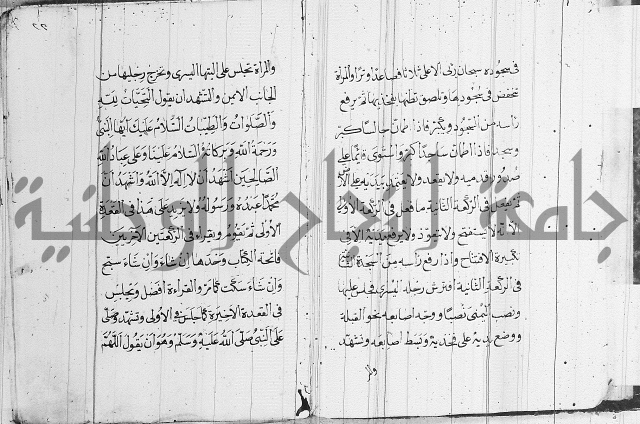 في سجوده سبحان ربي الاعلى ثلاثا فصاعدا وترا والمراة
تنخفض في سجودها وتلصق بطنها بفخذيها ثم يرفع
راسه من السجود ويكبر فاذا اطمان جالسا كبر
وسجد فاذا اطمان ساجدا كبر واستوى قائما على
صدور قدميه ولا يقعد ولا يعتمد بيديه على الارض
ويفعل في الركعة الثانية ما فعل في الركعة الاولى
الا انه لا يستفتح ولا يتعوذ ولا يرفع يديه الا في
تكبيرة الافتتاح واذا رفع راسه من السجدة الثانية
في الركعة الثانية افترش رجله اليسرى فجلس عليها
ونصب اليمنى نصبا ووجه اصابعه نحو القبلة
ووضع يديه على فخذيه وبسط اصابعه وتشهد
والمراة تجلس على اليتها اليسرى وتخرج رجليها من
الجانب الايمن والتشهد ان يقول التحيات لله
والصلوات والطيبات السلام عليك ايها النبي
ورحمة الله وبركاته السلام علينا وعلى عباد الله
الصالحين اشهد ان لا اله الا الله واشهد ان
محمدا عبده ورسوله ولا يزيد على هذا في القعدة
الاولى ثم يقوم ويقراء في الركعتين الاخريين
فاتحة الكتاب وحدها ان شاء وان شاء سبح
وان شاء سكت كما مر والقراءة افضل ويجلس
في القعدة الاخيرة كما جلس في الاولى وتشهد وصلى
على النبي صلى الله عليه وسلم وهو ان يقول اللهم
جامعة الملك سعود